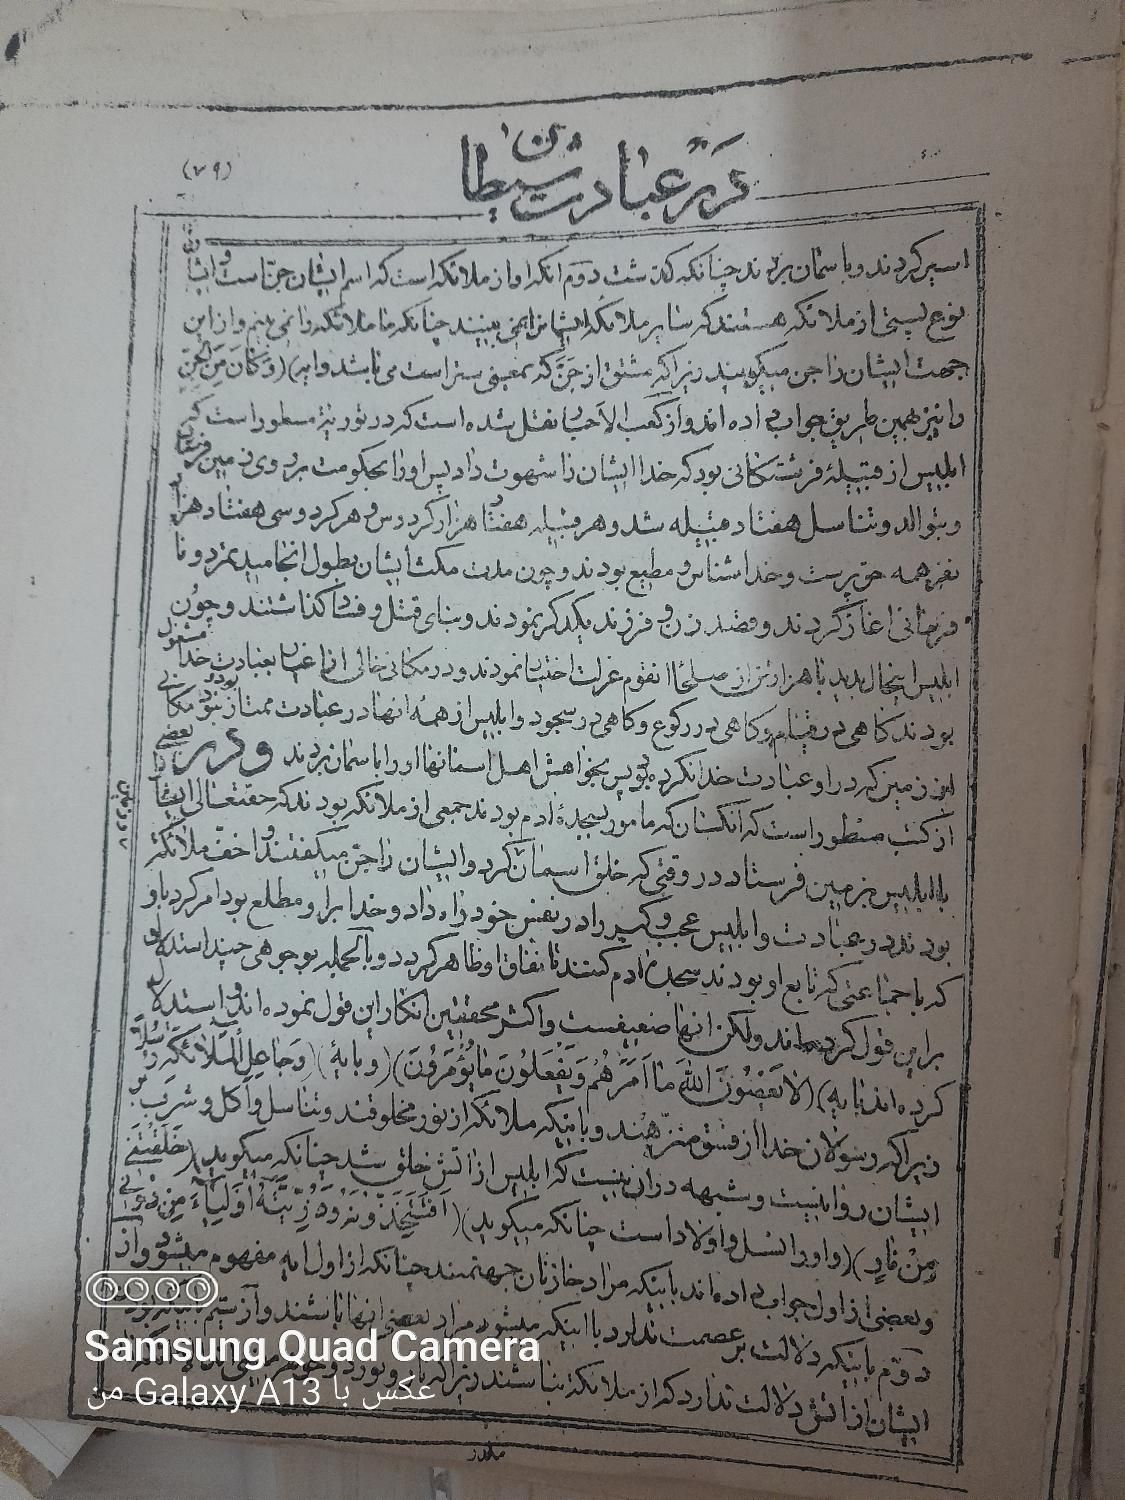 (۷۹)
در عبادت شیطان
اسیر کردند و باسمان بردند چنانکه گذشت دوم انکه او از ملائکه است که اسم ایشان جن است و ایشان
نوع از ملائکه هستند که سایر ملائکه ایشانرا نمی بینند چنانکه ما ملائکه را نمی بینم و از این
جهت ایشان را جن میگویند زیراکه مشتق از جن که بمعنی ستر است می باشد و ایه (وکان من الجن)
را نیز بهمین طریق جواب داده اند و از کعب الاحبار نقل شده است که در توریة مسطور است که
ابلیس از قبیلهٔ فرشتگانی بود که خدا ایشان را شهوت داد پس او را بحکومت بر روی زمین فرستاد
و بتوالد و تناسل هفتاد قبیله شد و هر قبیله هفتاد هزار کردوس و هر کردوسی هفتاد هزار
نفر همه حق پرست و خدا شناس و مطیع بودند و چون مدت مکث ایشان بطول انجامید تمرد و نا
فرمانی اغاز کردند و قصد زن و فرزند یکدیگر نمودند و بنای قتل و فساد گذاشتند و چون
ابلیس اینحال بدید با هزار تن از صلحا انقوم عزلت اختیار نمودند و در مکانی خالی از اغیار بعبادت خدا مشغول
بودند گاهی در قیام و گاهی در رکوع و گاهی در سجود و ابلیس از همهٔ انها در عبادت ممتاز بود و نبود مکانی
این زمین که در او عبادت خدا نکرده بود پس بخواهش اهل اسمانها او را باسمان بردند و در بعضی
از کتب مسطور است که انکسان که مامور بسجدهٔ ادم بودند جمعی از ملائکه بودند که حقتعالی ایشان را
با ابلیس بزمین فرستاد در وقتی که خلق اسمان کرد و ایشان را جن میگفتند و اخف ملائکه
بودند در عبادت و ابلیس عجب و کبر را در نفس خود راه داد و خدا بر او مطلع بود امر کرد باو
که با جماعتی که تابع او بودند سجدهٔ ادم کنند تا نفاق او ظاهر گردد و بالجمله بوجوهی چند استدلال
بر این قول کرده اند ولکن انها ضعیفست و اکثر محققین انکار این قول نموده اند و استدلال
کرده اند بایه (لا یعصون الله ما امرهم ویفعلون ما یؤمرون) (و بایهٔ) (وجاعل الملائکة رسلا)
زیراکه رسولان خدا از فسق منزهند و باینکه ملائکه از نور مخلوقند و تناسل و اکل و شرب بر
ایشان روا نیست و شبهه در ان نیست که ابلیس از اتش خلق شد چنانکه میگوید (خلقتنی
من نار) (و او را نسل و اولاد است چنانکه میگوید) (افتتخذونه وذریته اولیاء من دونی
و بعضی از اول جواب داده اند باینکه مراد خازنان جهنمند چنانکه از اول ایه مفهوم میشود و از
دوم باینکه دلالت بر عصمت ندارد با اینکه میشود مراد بعضی انها باشند و از سیم باینکه بودن
ایشان از اتش دلالت ندارد که از ملائکه نباشند زیراکه نار و نور
Samsung Quad Camera
عکس با Galaxy A13 من